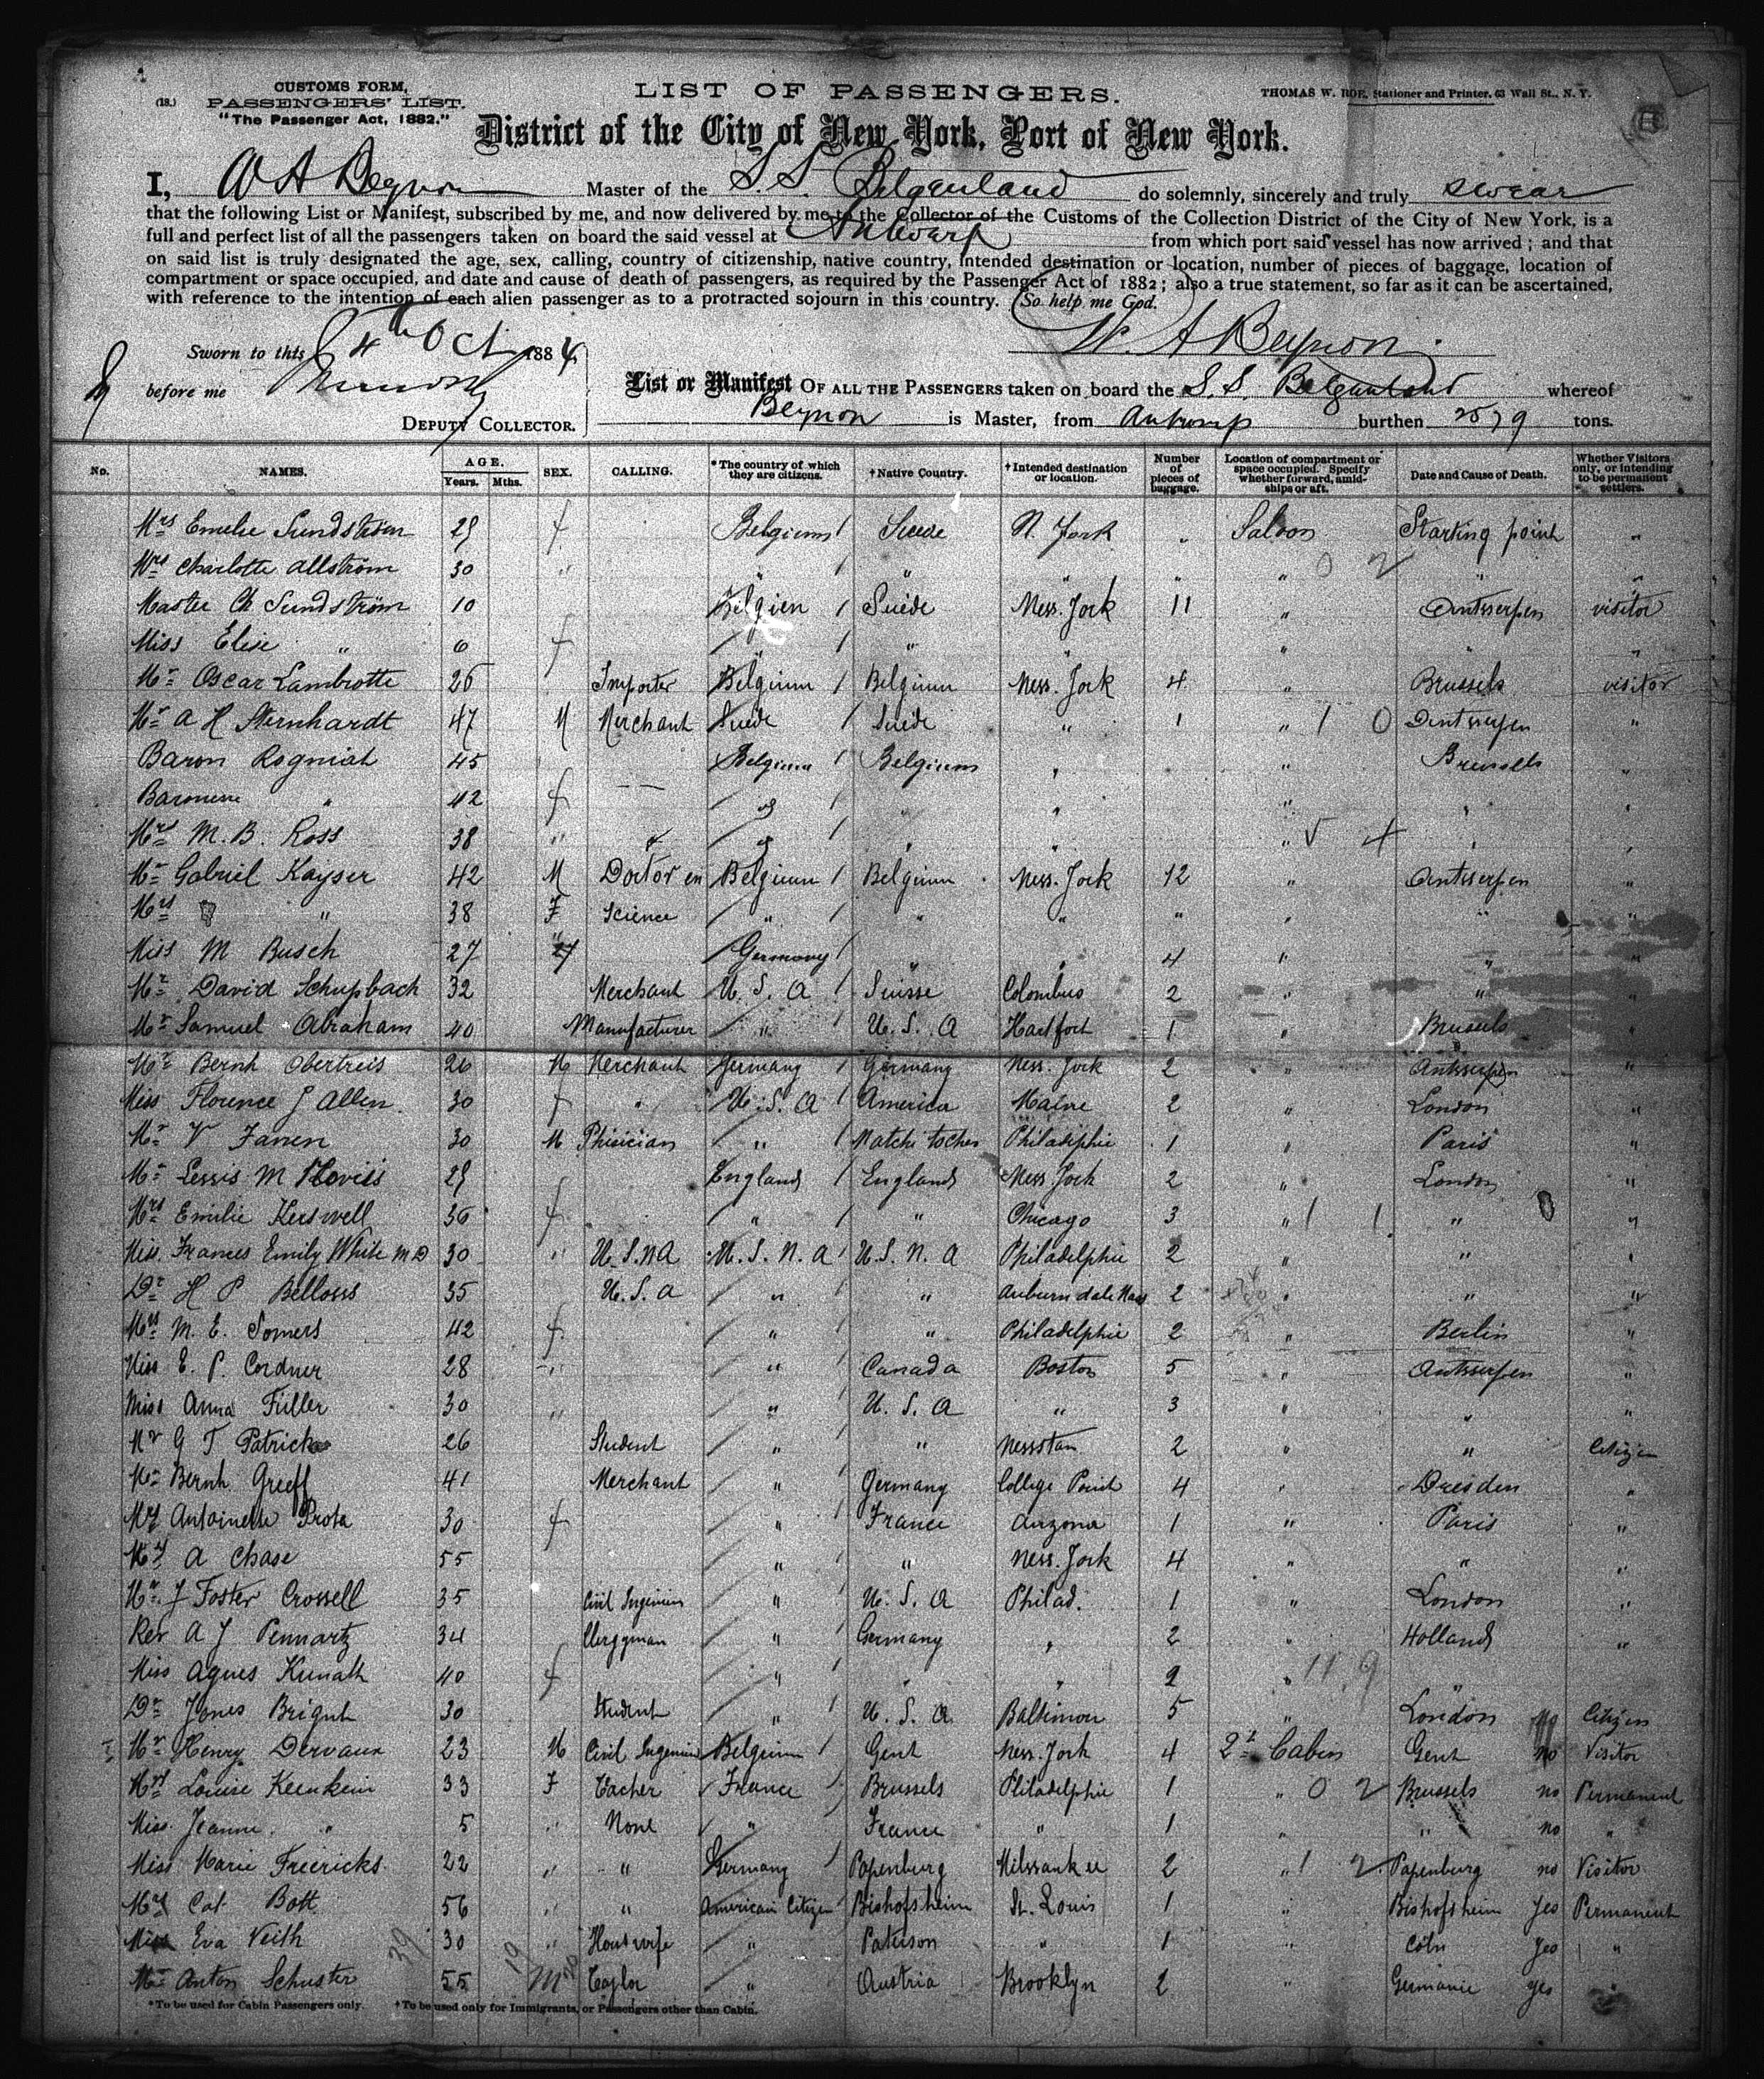 CUSTOMS FORM, LIST OF PASSENGERS. THOMAS W. ROE, Stationer and Printer, 63 Wall St., N. Y.
(18.) PASSENGERS' LIST.
"The Passenger Act, 1882."
District of the City of New York, Port of New York.
I, W A Beynon Master of the S. S. Belgenland do solemnly, sincerely and truly swear
that the following List or Manifest, subscribed by me, and now delivered by me to the Collector of the Customs of the Collection District of the City of New York, is a
full and perfect list of all the passengers taken on board the said vessel at Antwerp from which port said vessel has now arrived; and that
on said list is truly designated the age, sex, calling, country of citizenship, native country, intended destination or location, number of pieces of baggage, location of
compartment or space occupied, and date and cause of death of passengers, as required by the Passenger Act of 1882; also a true statement, so far as it can be ascertained,
with reference to the intention of each alien passenger as to a protracted sojourn in this country. So help me God.
Sworn to this 4th Oct 1884 W. A Beynon
before me List or Manifest OF ALL THE PASSENGERS taken on board the S. S. Belgenland whereof
DEPUTY COLLECTOR. Beynon is Master, from Antwerp burthen 2579 tons.
No. NAMES. AGE. Years. Mths. SEX. CALLING. *The country of which they are citizens. †Native Country. †Intended destination or location. Number of pieces of baggage. Location of compartment or space occupied. Specify whether forward, amidships or aft. Date and Cause of Death. Whether Visitors only, or intending to be permanent settlers.
Mrs Emelie Sundström 29 f Belgium Suede N. York " Saloon Starting point "
Mrs Charlotte Allström 30 " " " " " " 0 2 " "
Master Ch Sundström 10 Belgien Suède New. York 11 " Antwerpen visitor
Miss Elise " 6 f " " " " " "
Mr Oscar Lambrotte 26 Importer Belgium Belgium New. York 4 " Brussels visitor
Mr A H Sternhardt 47 M Merchant Suède Suède " 1 " 1 0 Antwerpen "
Baron Rogniat 45 Belgium Belgium " " Brussels "
Baronesse " 42 f " " " " " "
Mrs M. B. Ross 38 " " " " " 5 4 " "
Mr Gabriel Kayser 42 M Doctor en Belgium Belgium New. York 12 " Antwerpen "
Mrs " 38 F Science " " " " " " "
Miss M Busch 27 " Germany " " 4 " " "
Mr David Schupbach 32 Merchant U. S. A Suisse Colombus 2 " " "
Mr Samuel Abraham 40 Manufacturer " U. S. A Hartfort 1 " Brussels "
Mr Bernh Obertreis 26 M Merchant Germany Germany New. York 2 " Antwerpen "
Miss Florence J Allen 30 f " U. S. A America Maine 2 " London "
Mr V Farren 30 M Phisician " Natchitoches Philadelphie 1 " Paris "
Mr Lewis M 29 England England New York 2 " London "
Mrs Emilie Kerswell 36 f " " Chicago 3 " 1 1 " "
Miss Frances Emily White M D 30 " U. S. N A U. S. N. A U. S. N. A Philadelphie 2 " " "
Dr H P Bellows 35 U. S. A " " Auburndale Mass 2 " " "
Mrs M. E. Somers 42 f " " Philadelphie 2 " Berlin "
Miss E. P. Cordner 28 " " Canada Boston 5 " Antwerpen "
Miss Anna Füller 30 " " U. S. A " 3 " " "
Mr G T Patrick 26 Student " " Newstan 2 " " Citizen
Mr Bernh Greeff 41 Merchant " Germany College Point 4 " Dresden "
Mrs Antoinette Prota 30 f " France Arizona 1 " Paris "
Mrs A Chase 55 " " New. York 4 " " "
Mr J Foster Crowell 35 Civil Ingenieur " U. S. A Philad. 1 " London "
Rev A J Pennartz 34 Clergyman " Germany " 2 " Holland "
Miss Agnes Kunath 40 f " " " 2 " 11 9 " "
Dr Jones Bright 30 Student " U. S. A Baltimore 5 " London No Citizen
Mr Henry Dervaux 23 M Civil Ingenieur Belgium Gent New. York 4 2d Cabin Gent no Visitor
Mrs Louise Keenkein 33 F Teacher France Brussels Philadelphie 1 " 0 2 Brussels no Permanent
Miss Jeanne " 5 " None " France " 1 " " no "
Miss Marie Freericks 22 " " Germany Papenburg Milwaukee 2 " 1 2 Papenburg no Visitor
Mrs Cat Bott 56 " " American Citizen Bishofsheim St. Louis 1 " Bishofsheim Yes Permanent
Miss Eva Veith 30 " Housewife " Paterson " 1 " Cöln Yes "
Mr Anton Schuster 55 M Taylor " Austria Brooklyn 2 " Germanie yes "
39 19
*To be used for Cabin Passengers only. †To be used only for Immigrants, or Passengers other than Cabin.